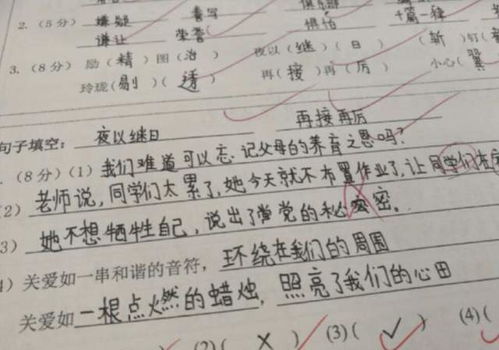 2. (5分) 嫌疑 书写
谦让 坐 俱怕 千篇一律
3. (8分) 励(精)图(治) 夜以(继)(日) (斩)钉(
玲珑(剔)(透) 再(接)再(厉) 小心(翼
句子填空: 夜以继日 再接再厉
. (8分) (1) 我们难道可以忘记父母的养育之恩吗?
2) 老师说,同学们太累了,她今天就不布置作业了,让同学们在
3) 她不想牺牲自己,说出了党的秘密。
) 关爱如一串和谐的音符, 环绕在我们的周围
关爱如一根点燃的蜡烛, 照亮了我们的心田
(2)( × ) (3)( ✓ ) (4)(